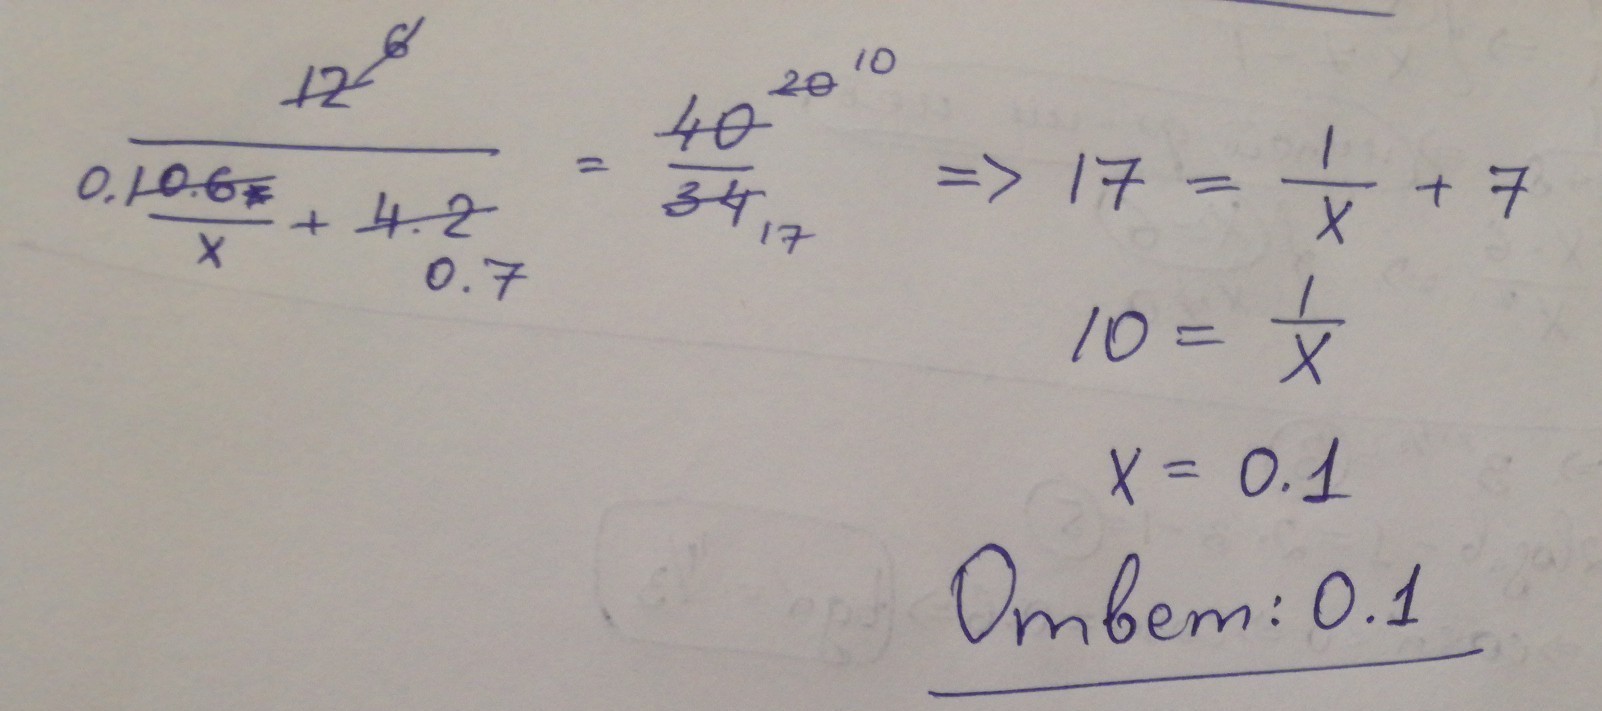 12 6
0.1 0.6 / x + 4.2 0.7 = 40 20 10 / 34 17 => 17 = 1/x + 7
10 = 1/x
x = 0.1
Ответ: 0.1